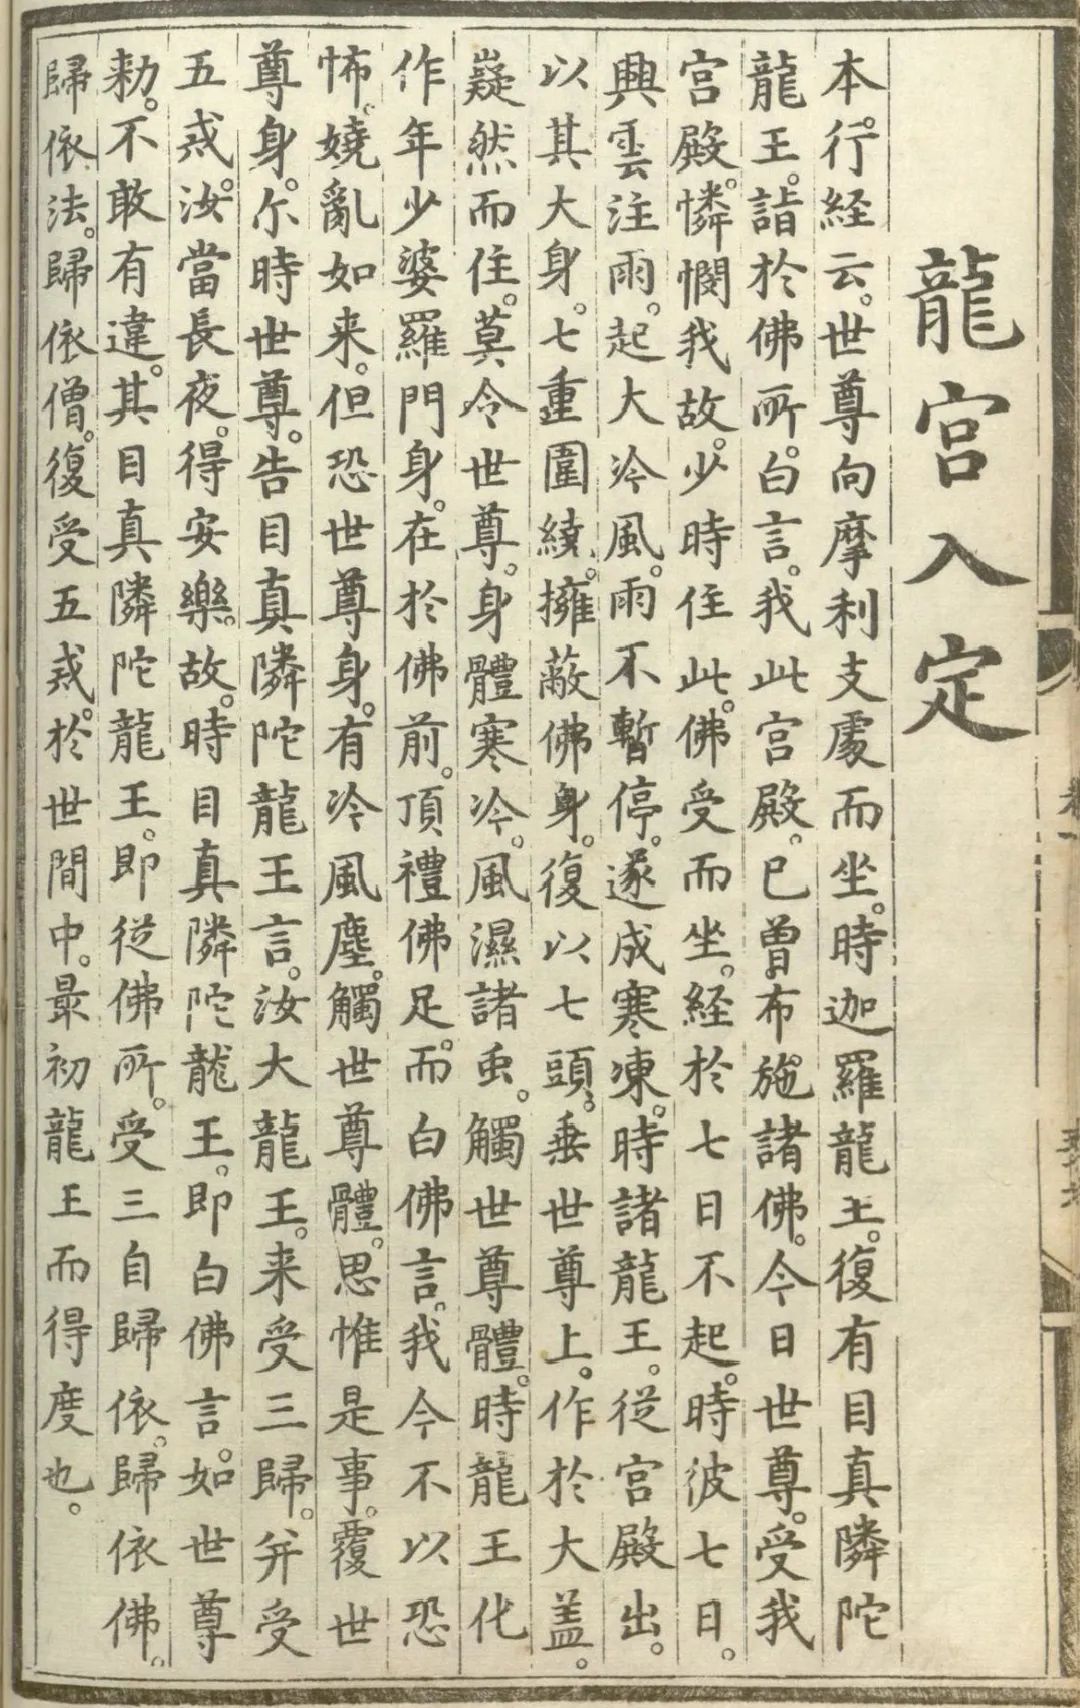 龍宮入定
本行経云。世尊向摩利支處而坐。時迦羅龍王。復有目真隣陀
龍王。詣於佛所。白言。我此宮殿。已曽布施諸佛。今日世尊。受我
宮殿。憐憫我故。少時住此。佛受而坐。経於七日不起。時彼七日。
興雲注雨。起大冷風。雨不暫停。遂成寒凍。時諸龍王。従宮殿出。
以其大身。七重圍繞。擁蔽佛身。復以七頭。垂世尊上。作於大盖。
嶷然而住。莫令世尊。身體寒冷。風濕諸虫。觸世尊體。時龍王化
作年少婆羅門身。在於佛前。頂禮佛足。而白佛言。我今不以恐
怖。嬈亂如来。但恐世尊身。有冷風塵。觸世尊體。思惟是事。覆世
尊身。尒時世尊。告目真隣陀龍王言。汝大龍王。来受三歸。并受
五戒。汝當長夜。得安樂。故。時目真隣陀龍王。即白佛言。如世尊
勑。不敢有違。其目真隣陀龍王。即従佛所。受三自歸依。歸依佛。
歸依法。歸依僧。復受五戒。於世間中。最初龍王而得度也。